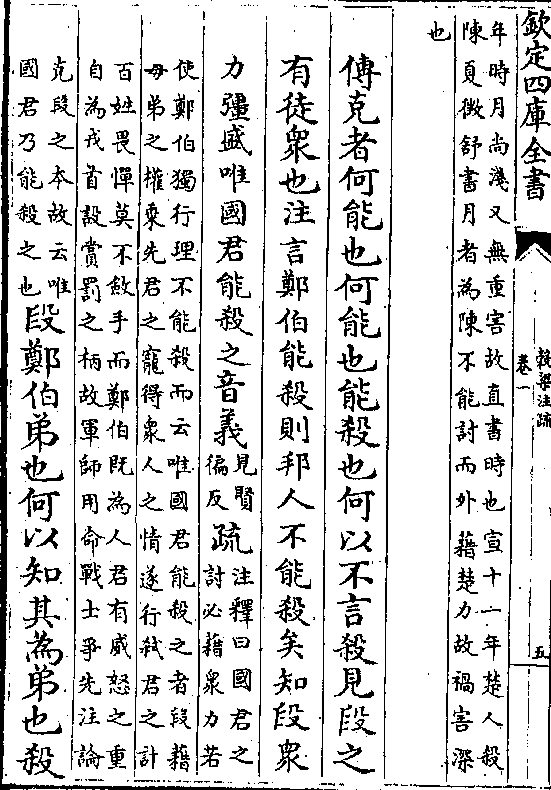 欽定四庫全書
穀梁注疏
卷一
五
年時月尚淺又無重害故直書時也宣十一年楚人殺
陳夏徵舒書月者為陳不能討而外藉楚力故禍害深
也
傳克者何能也何能也能殺也何以不言殺見段之
有徒眾也注言鄭伯能殺則邦人不能殺矣知段眾
力彊盛唯國君能殺之音義見賢
徧反疏注釋曰國君之
討必藉眾力若
使鄭伯獨行理不能殺而云唯國君能殺之者段藉
母弟之權乘先君之寵得眾人之情遂行弒君之計
百姓畏憚莫不斂手而鄭伯既為人君有威怒之重
自為戎首設賞罰之柄故軍師用命戰士爭先注論
克段之本故云唯
國君乃能殺之也段鄭伯弟也何以知其為弟也殺